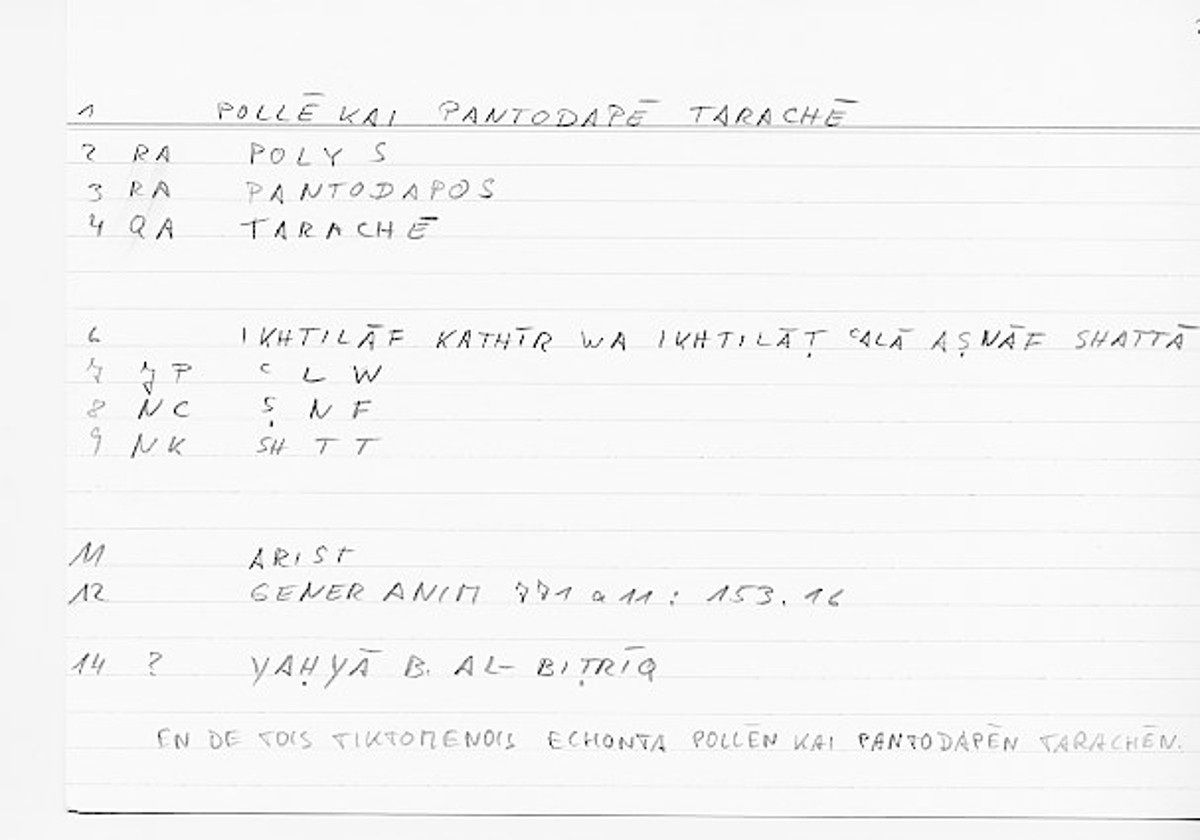 1 POLLĒ KAI PANTODAPĒ TARACHĒ
2 RA POLYS
3 RA PANTODAPOS
4 QA TARACHĒ
6 IKHTILĀF KATHĪR WA IKHTILĀṬ ʿALĀ AṢNĀF SHATTĀ
7 JP ʿ L W
8 NC Ṣ N F
9 NK SH T T
11 ARIST
12 GENER ANIM 771 a 11 : 153.16
14 ? YAḤYĀ B. AL-BIṬRĪQ
EN DE TOIS TIKTOMENOIS ECHONTA POLLĒN KAI PANTODAPĒN TARACHĒN.